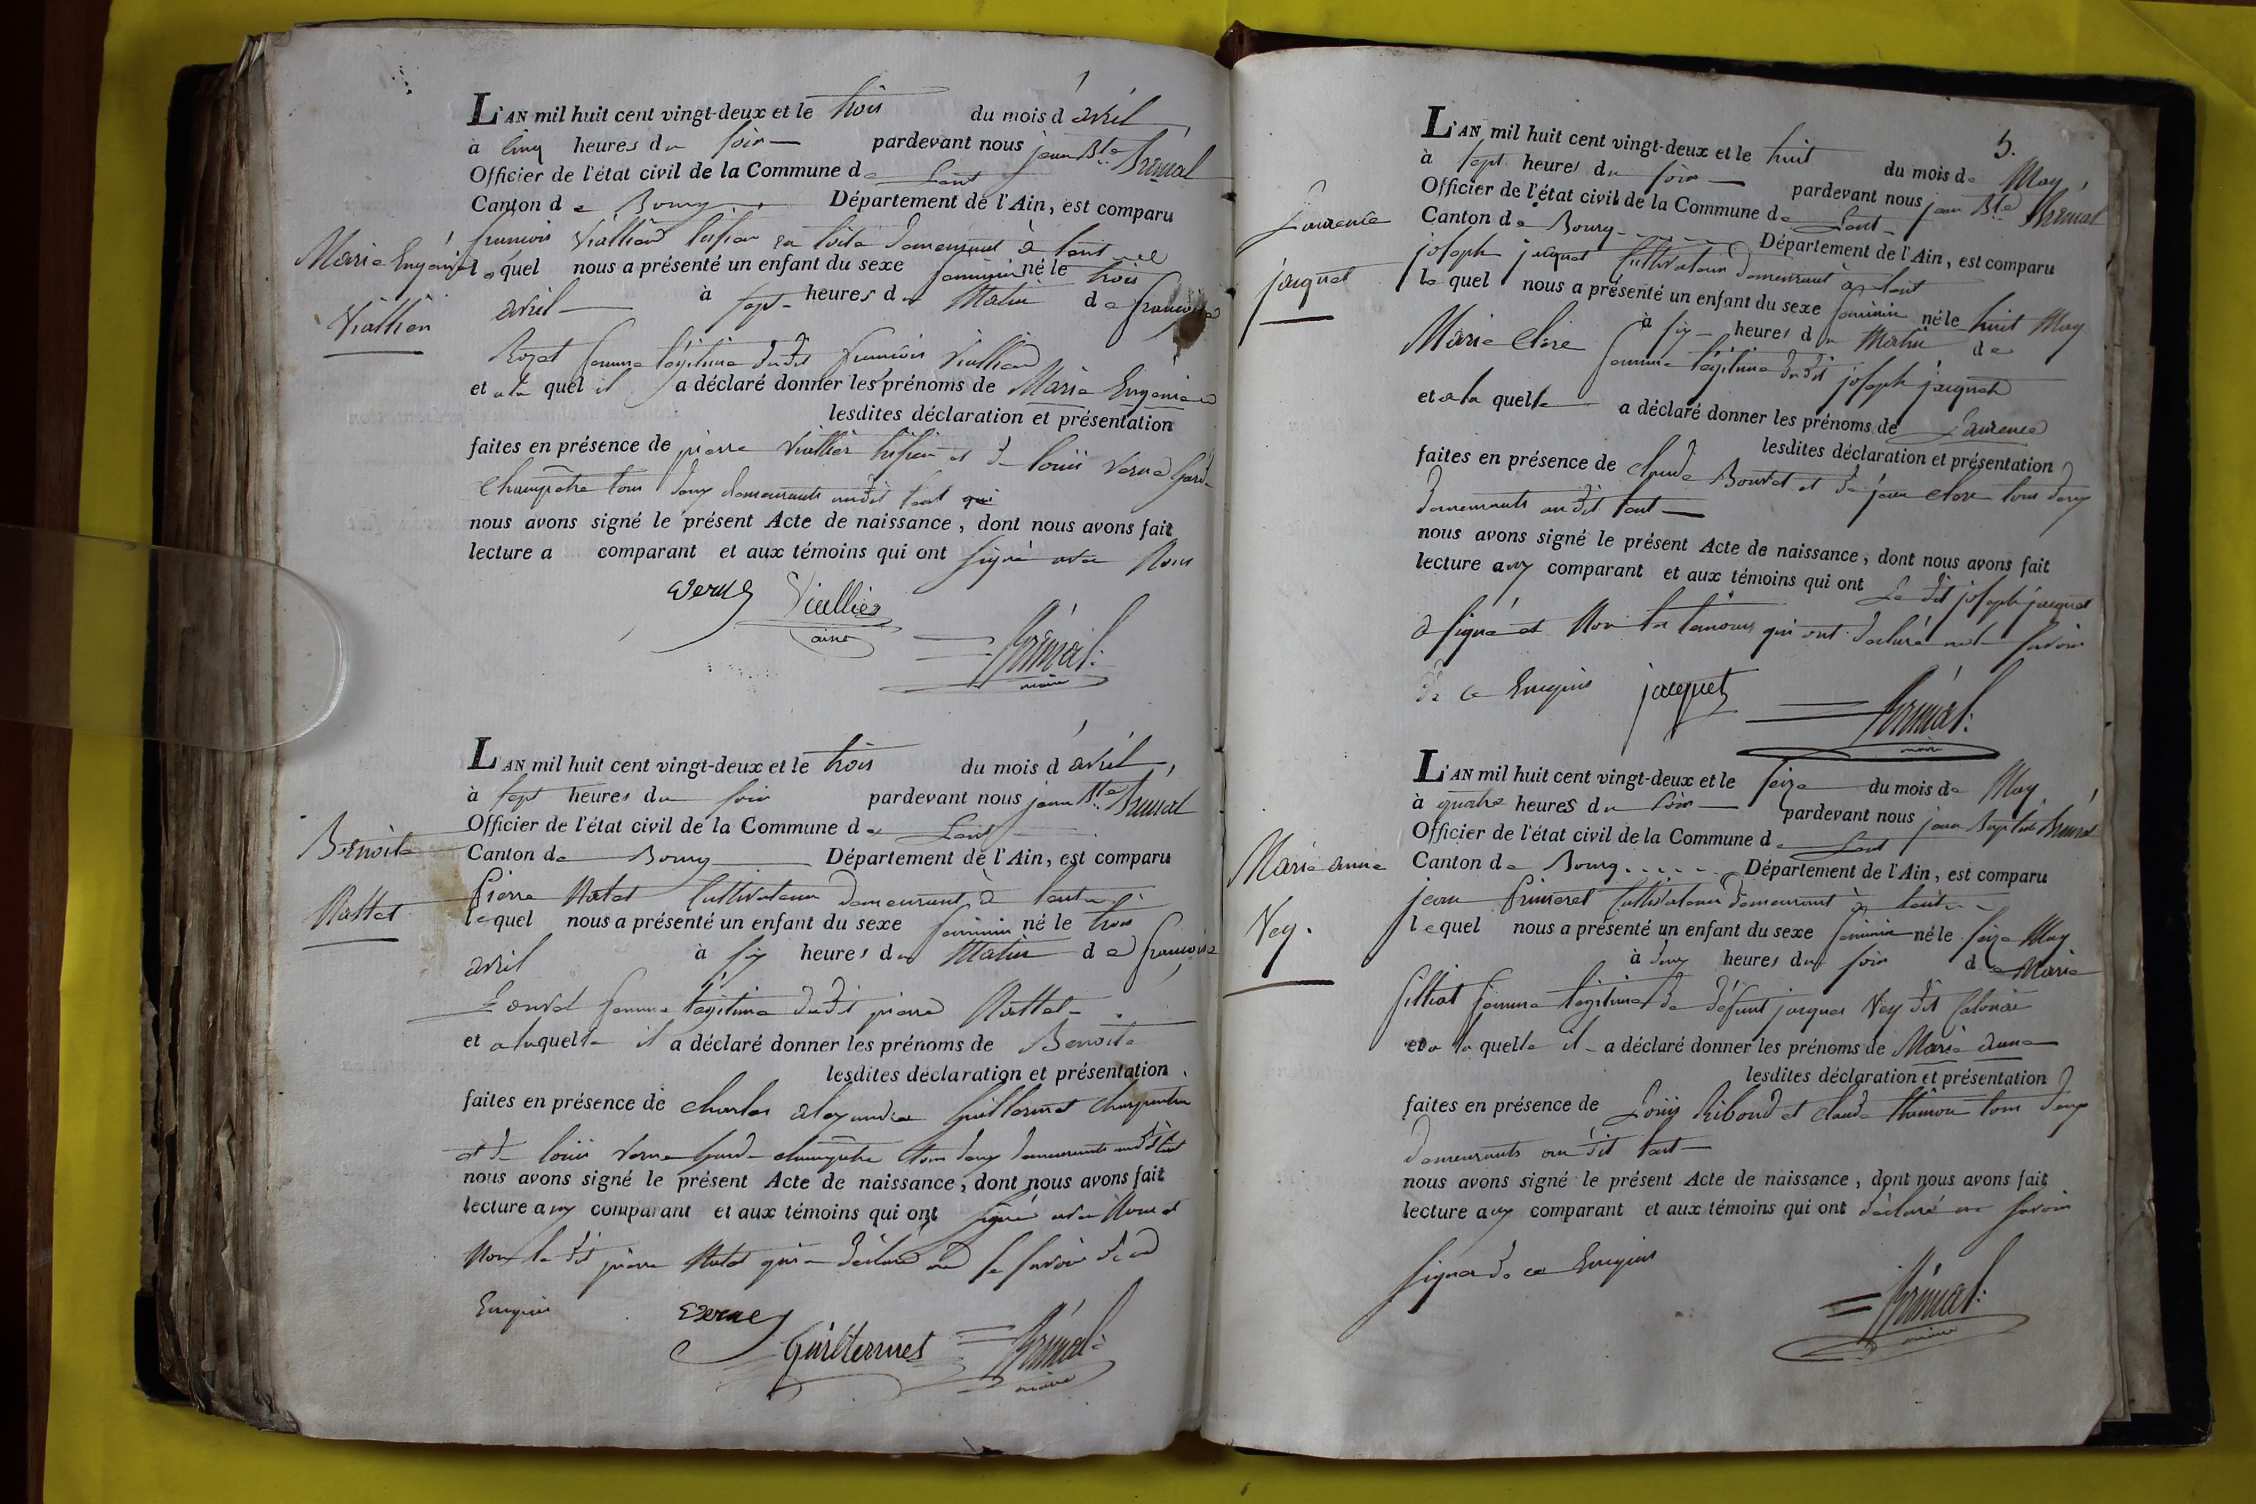 L'AN mil huit cent vingt-deux et le trois du mois d'avril
à cinq heures du soir pardevant nous jean Bte
Officier de l'état civil de la Commune de
Canton de Bourg Département de l'Ain, est comparu
françois demeurant à
Marie Eugénie
lequel nous a présenté un enfant du sexe feminin né le trois
avril à sept heures du Matin de françoise
femme légitime dudit françois
et a la quel il a déclaré donner les prénoms de Marie Eugénie
lesdites déclaration et présentation
faites en présence de pierre et de louis verne garde
Champêtre tous deux demeurants audit qui
nous avons signé le présent Acte de naissance, dont nous avons fait
lecture a comparant et aux témoins qui ont signé avec Nous
verne
ainé
maire
L'AN mil huit cent vingt-deux et le trois du mois d'avril,
à sept heures du soir pardevant nous jean Bte
Officier de l'état civil de la Commune de
Benoite
Canton de Bourg Département de l'Ain, est comparu
Nattet
pierre Natet Cultivateur demeurant à
lequel nous a présenté un enfant du sexe feminin né le trois
avril à six heures du Matin de françoise
femme légitime dudit pierre Nattet
et a laquelle il a déclaré donner les prénoms de Benoite
lesdites déclaration et présentation
faites en présence de charles alexandre Guillermet charpentier
et de louis verne garde champêtre tous deux demeurants audit
nous avons signé le présent Acte de naissance, dont nous avons fait
lecture aux comparant et aux témoins qui ont signé avec Nous et
Non le dit pierre Natet qui a déclaré ne le savoir de ce
Enquis
verne
Guillermet
maire
5.
L'AN mil huit cent vingt-deux et le huit du mois de May,
à sept heures du soir pardevant nous jean Bte
Officier de l'état civil de la Commune de
Laurence
Canton de Bourg Département de l'Ain, est comparu
joseph jacquet Cultivateur demeurant à
jacquet
lequel nous a présenté un enfant du sexe feminin né le huit May
à six heures du Matin de
Marie Clere femme légitime dudit joseph jacquet
et a la quelle a déclaré donner les prénoms de Laurence
lesdites déclaration et présentation
faites en présence de claude Bouvet et de jean clere tous deux
demeurants au dit
nous avons signé le présent Acte de naissance, dont nous avons fait
lecture aux comparant et aux témoins qui ont Le dit joseph jacquet
a signé et Non les témoins qui ont déclaré ne le savoir
de ce Enquis jacquet
maire
L'AN mil huit cent vingt-deux et le seize du mois de May
à quatre heures du soir pardevant nous jean Baptiste
Officier de l'état civil de la Commune de
Marie anne
Canton de Bourg Département de l'Ain, est comparu
jean Cultivateur demeurant à
Vey.
lequel nous a présenté un enfant du sexe feminin né le seize May
à deux heures du soir de Marie
femme légitime de défunt jacques Vey dit
et a la quelle il a déclaré donner les prénoms de Marie anne
lesdites déclaration et présentation
faites en présence de Louis Riboud et claude tous deux
demeurants au dit
nous avons signé le présent Acte de naissance, dont nous avons fait
lecture aux comparant et aux témoins qui ont déclaré ne savoir
signer de ce Enquis
maire